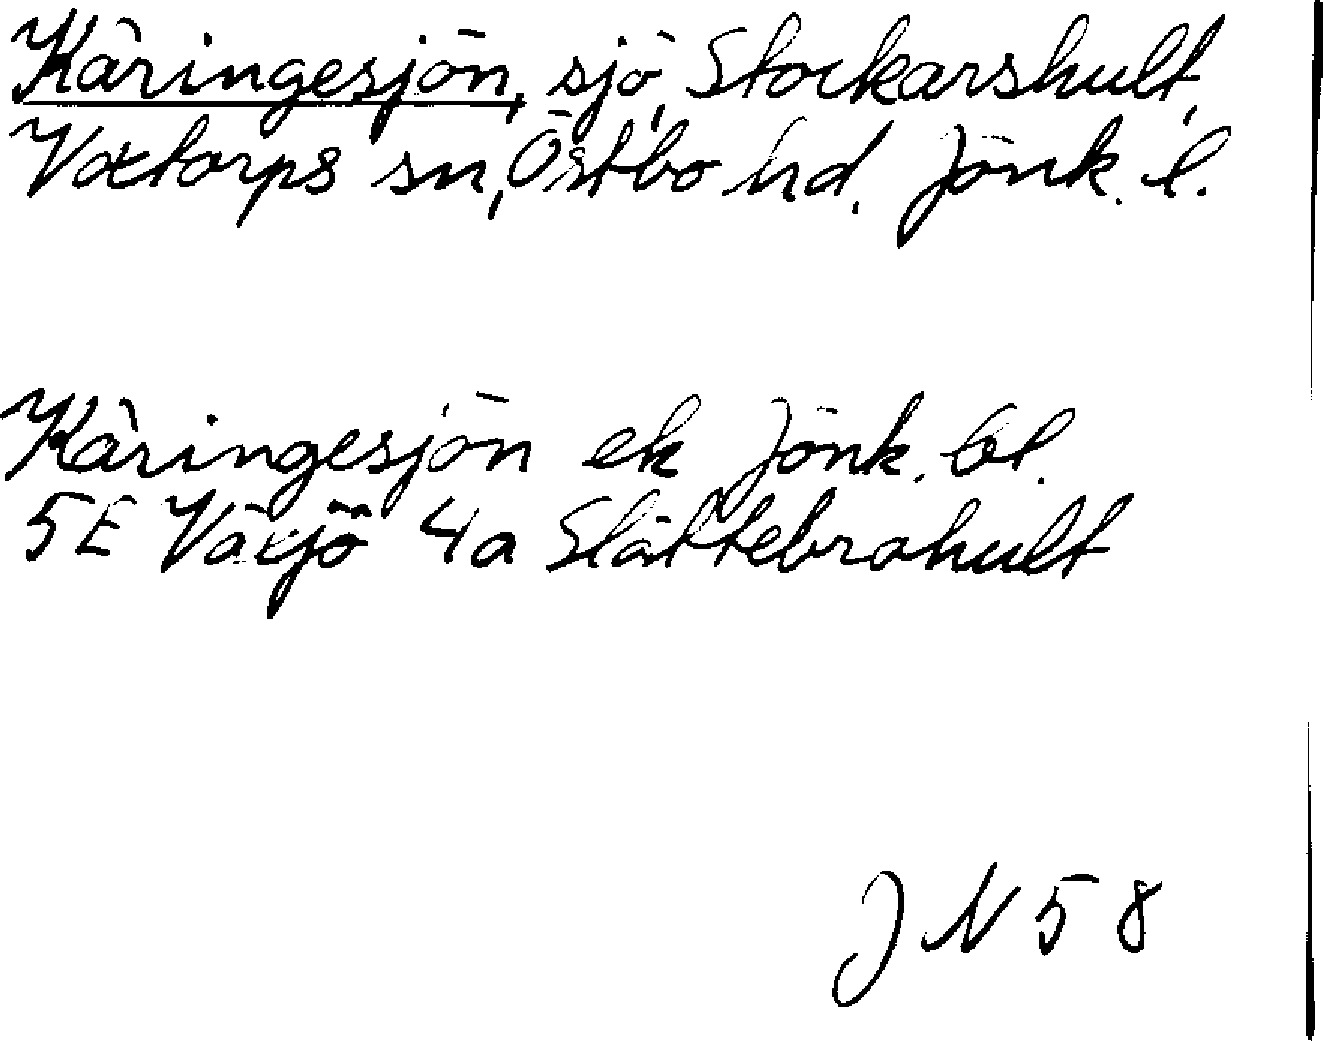 Käringesjön, sjö, Stockarshult,
Voxtorps sn, Östbo hd. Jönk. l.
Käringesjön ek Jönk. bl.
5E Växjö 4a Slättebrohult
J N 58